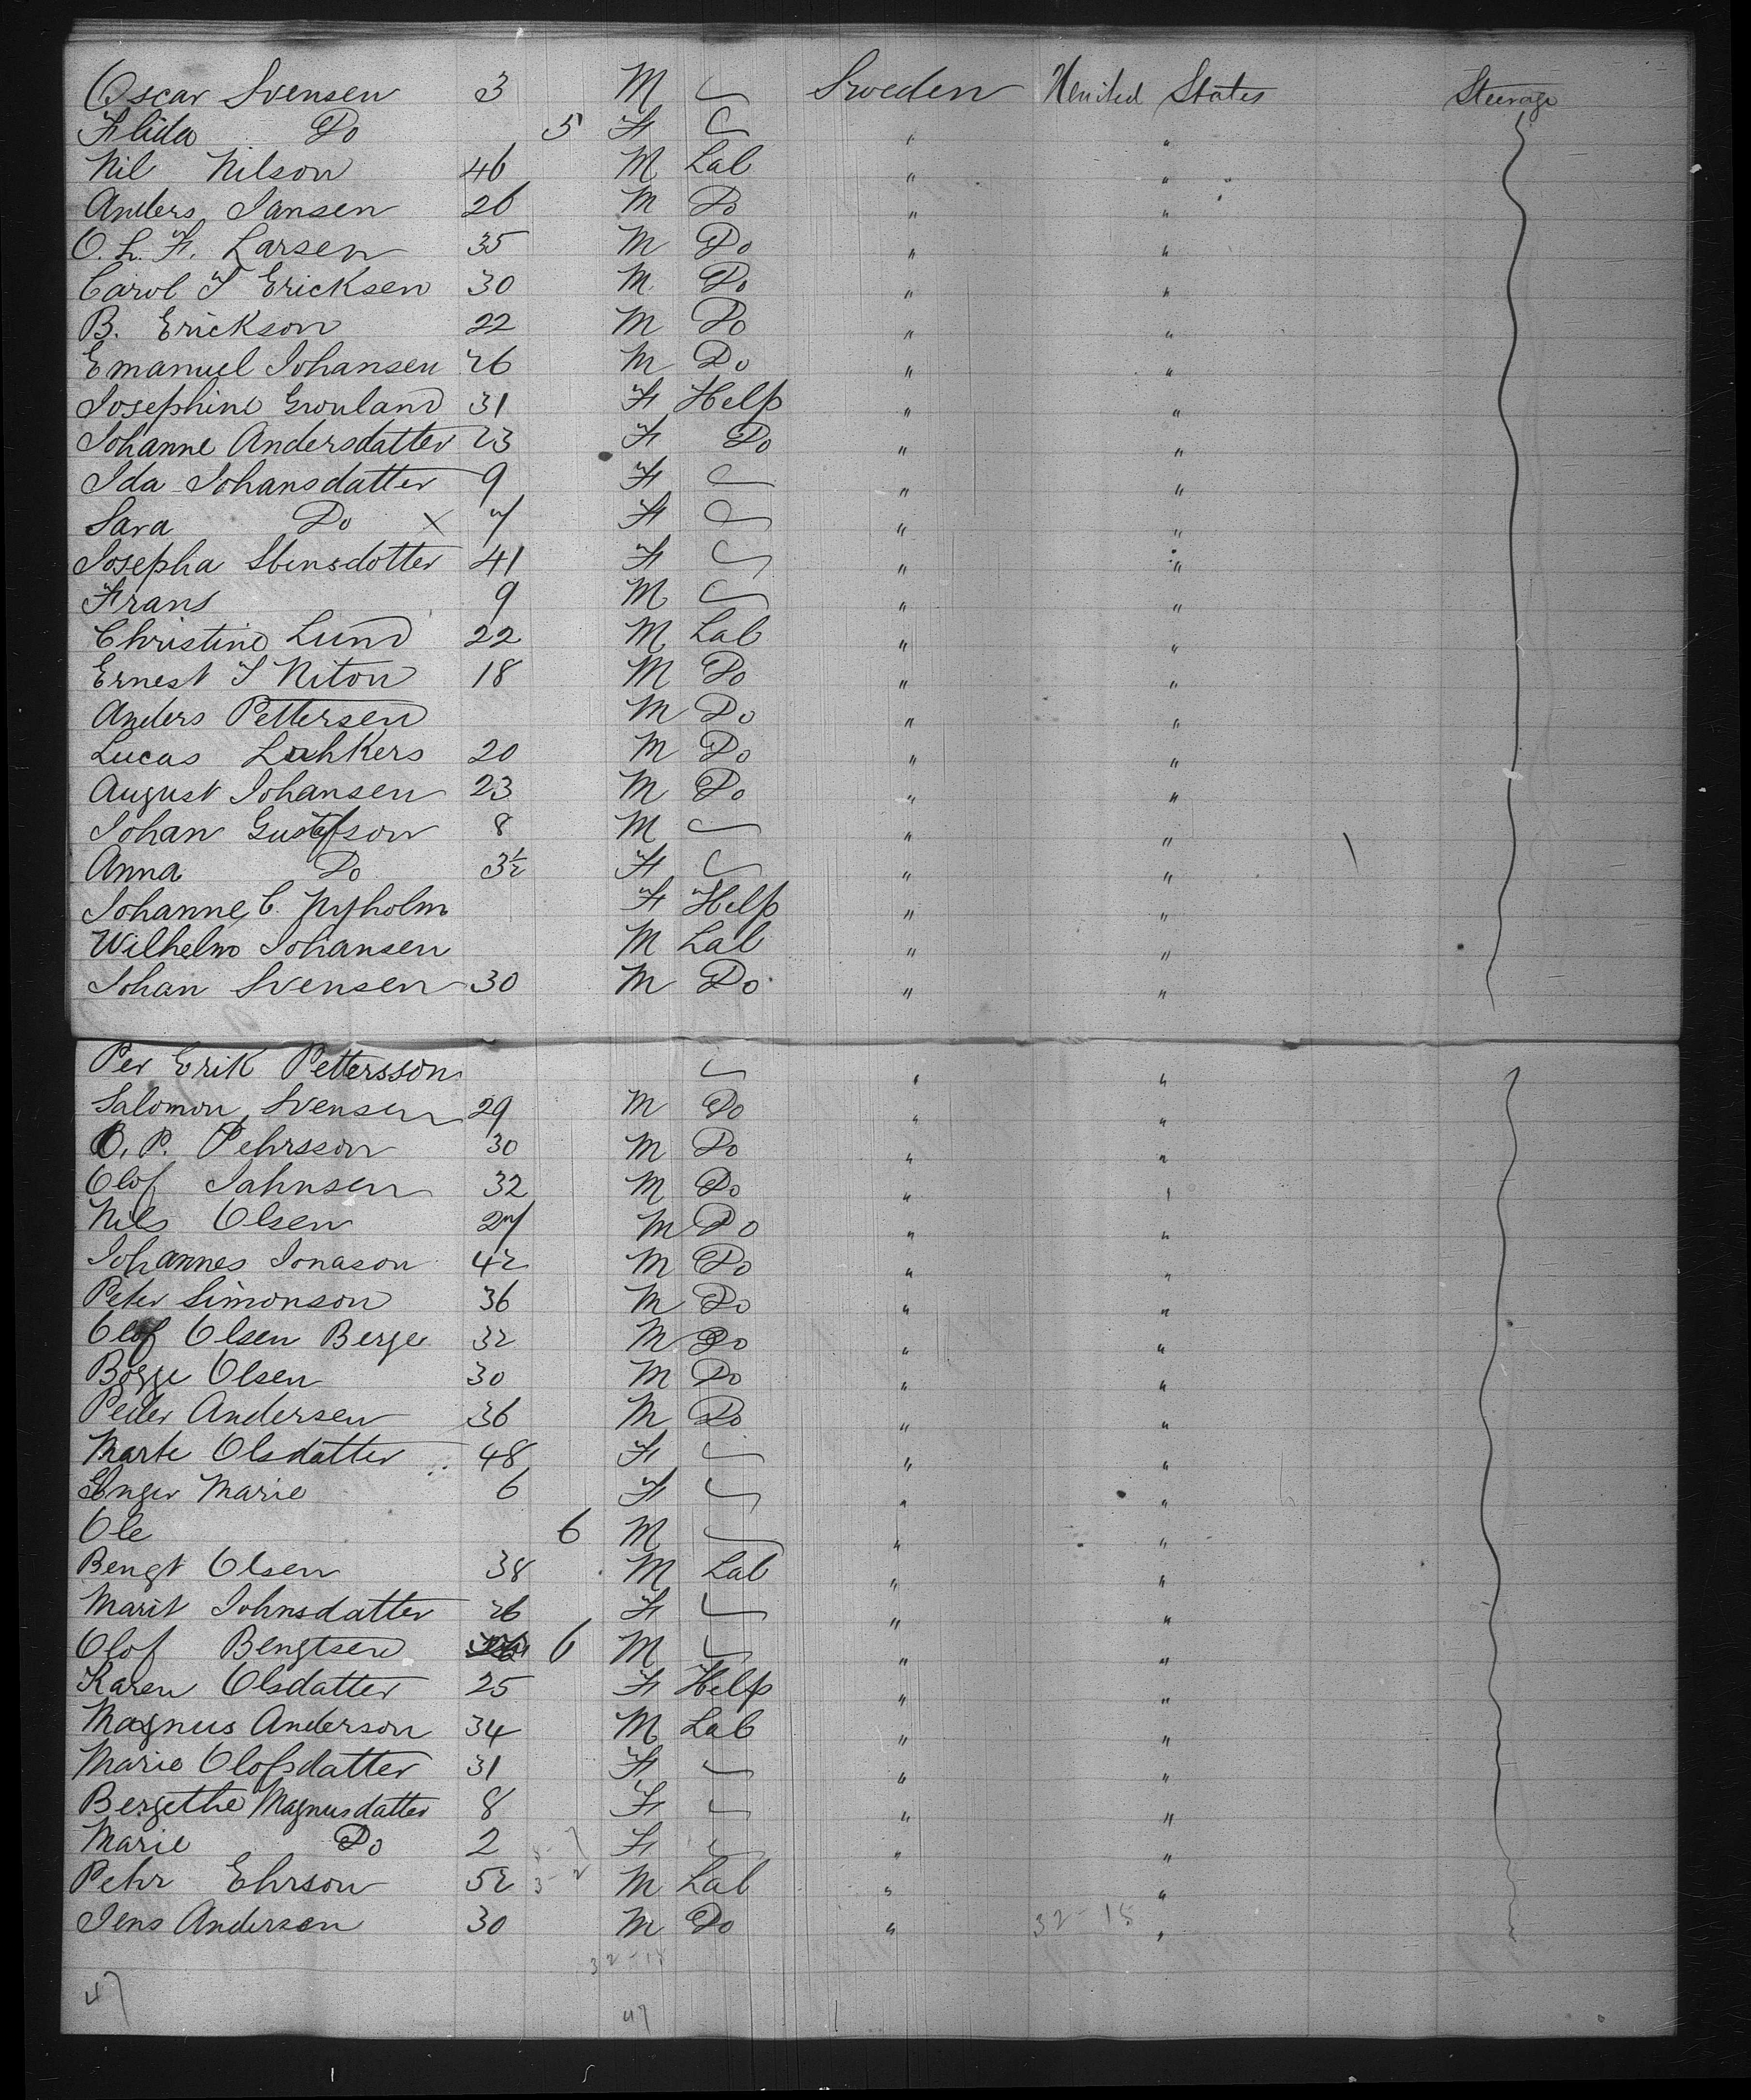 Oscar Svensen 3 M Sweden United States Steerage
Alida Do 5 F " "
Nil Nilson 46 M Lab " "
Anders Jansen 26 M Do " "
O. L. F. Larsen 35 M Do " "
Carol J Ericksen 30 M Do " "
B. Erickson 22 M Do " "
Emanuel Johansen 26 M Do " "
Josephine 31 F Help " "
Johanne Andersdatter 23 F Do " "
Ida Johansdatter 9 F " "
Sara Do X 7 F " "
Josepha Stensdotter 41 F " "
Frans 9 M " "
Christine Lund 22 M Lab " "
Ernest J Niton 18 M Do " "
Anders Pettersen M Do " "
Lucas 20 M Do " "
August Johansen 23 M Do " "
Johan Gustafson 8 M " "
Anna Do 3½ F " "
Johanne C. Nyholm F Help " "
Wilhelm Johansen M Lab " "
Johan Svensen 30 M Do " "
Per Erik Pettersson " "
Salomon Svensen 29 M Do " "
O. P. Pehrsson 30 M Do " "
Olof Jahnsen 32 M Do " "
Nils Olsen 27 M Do " "
Johannes Jonason 42 M Do " "
Peter Simonson 36 M Do " "
Olof Olsen Berge 32 M Do " "
Bogge Olsen 30 M Do " "
Peder Andersen 36 M Do " "
Marte Olsdatter 48 F " "
Inger Marie 6 F " "
Ole 6 M " "
Bengt Olsen 38 M Lab " "
Marit Johnsdatter 26 F " "
Olof Bengtsen 6 M " "
Karen Olsdatter 25 F Help " "
Magnus Anderson 34 M Lab " "
Marie Olofsdatter 31 F " "
Bergethe Magnusdatter 8 F " "
Marie Do 2 F " "
Pehr Ehrson 52 M Lab " "
Jens Andersen 30 M Do " 32-15 "
32-15
47 47